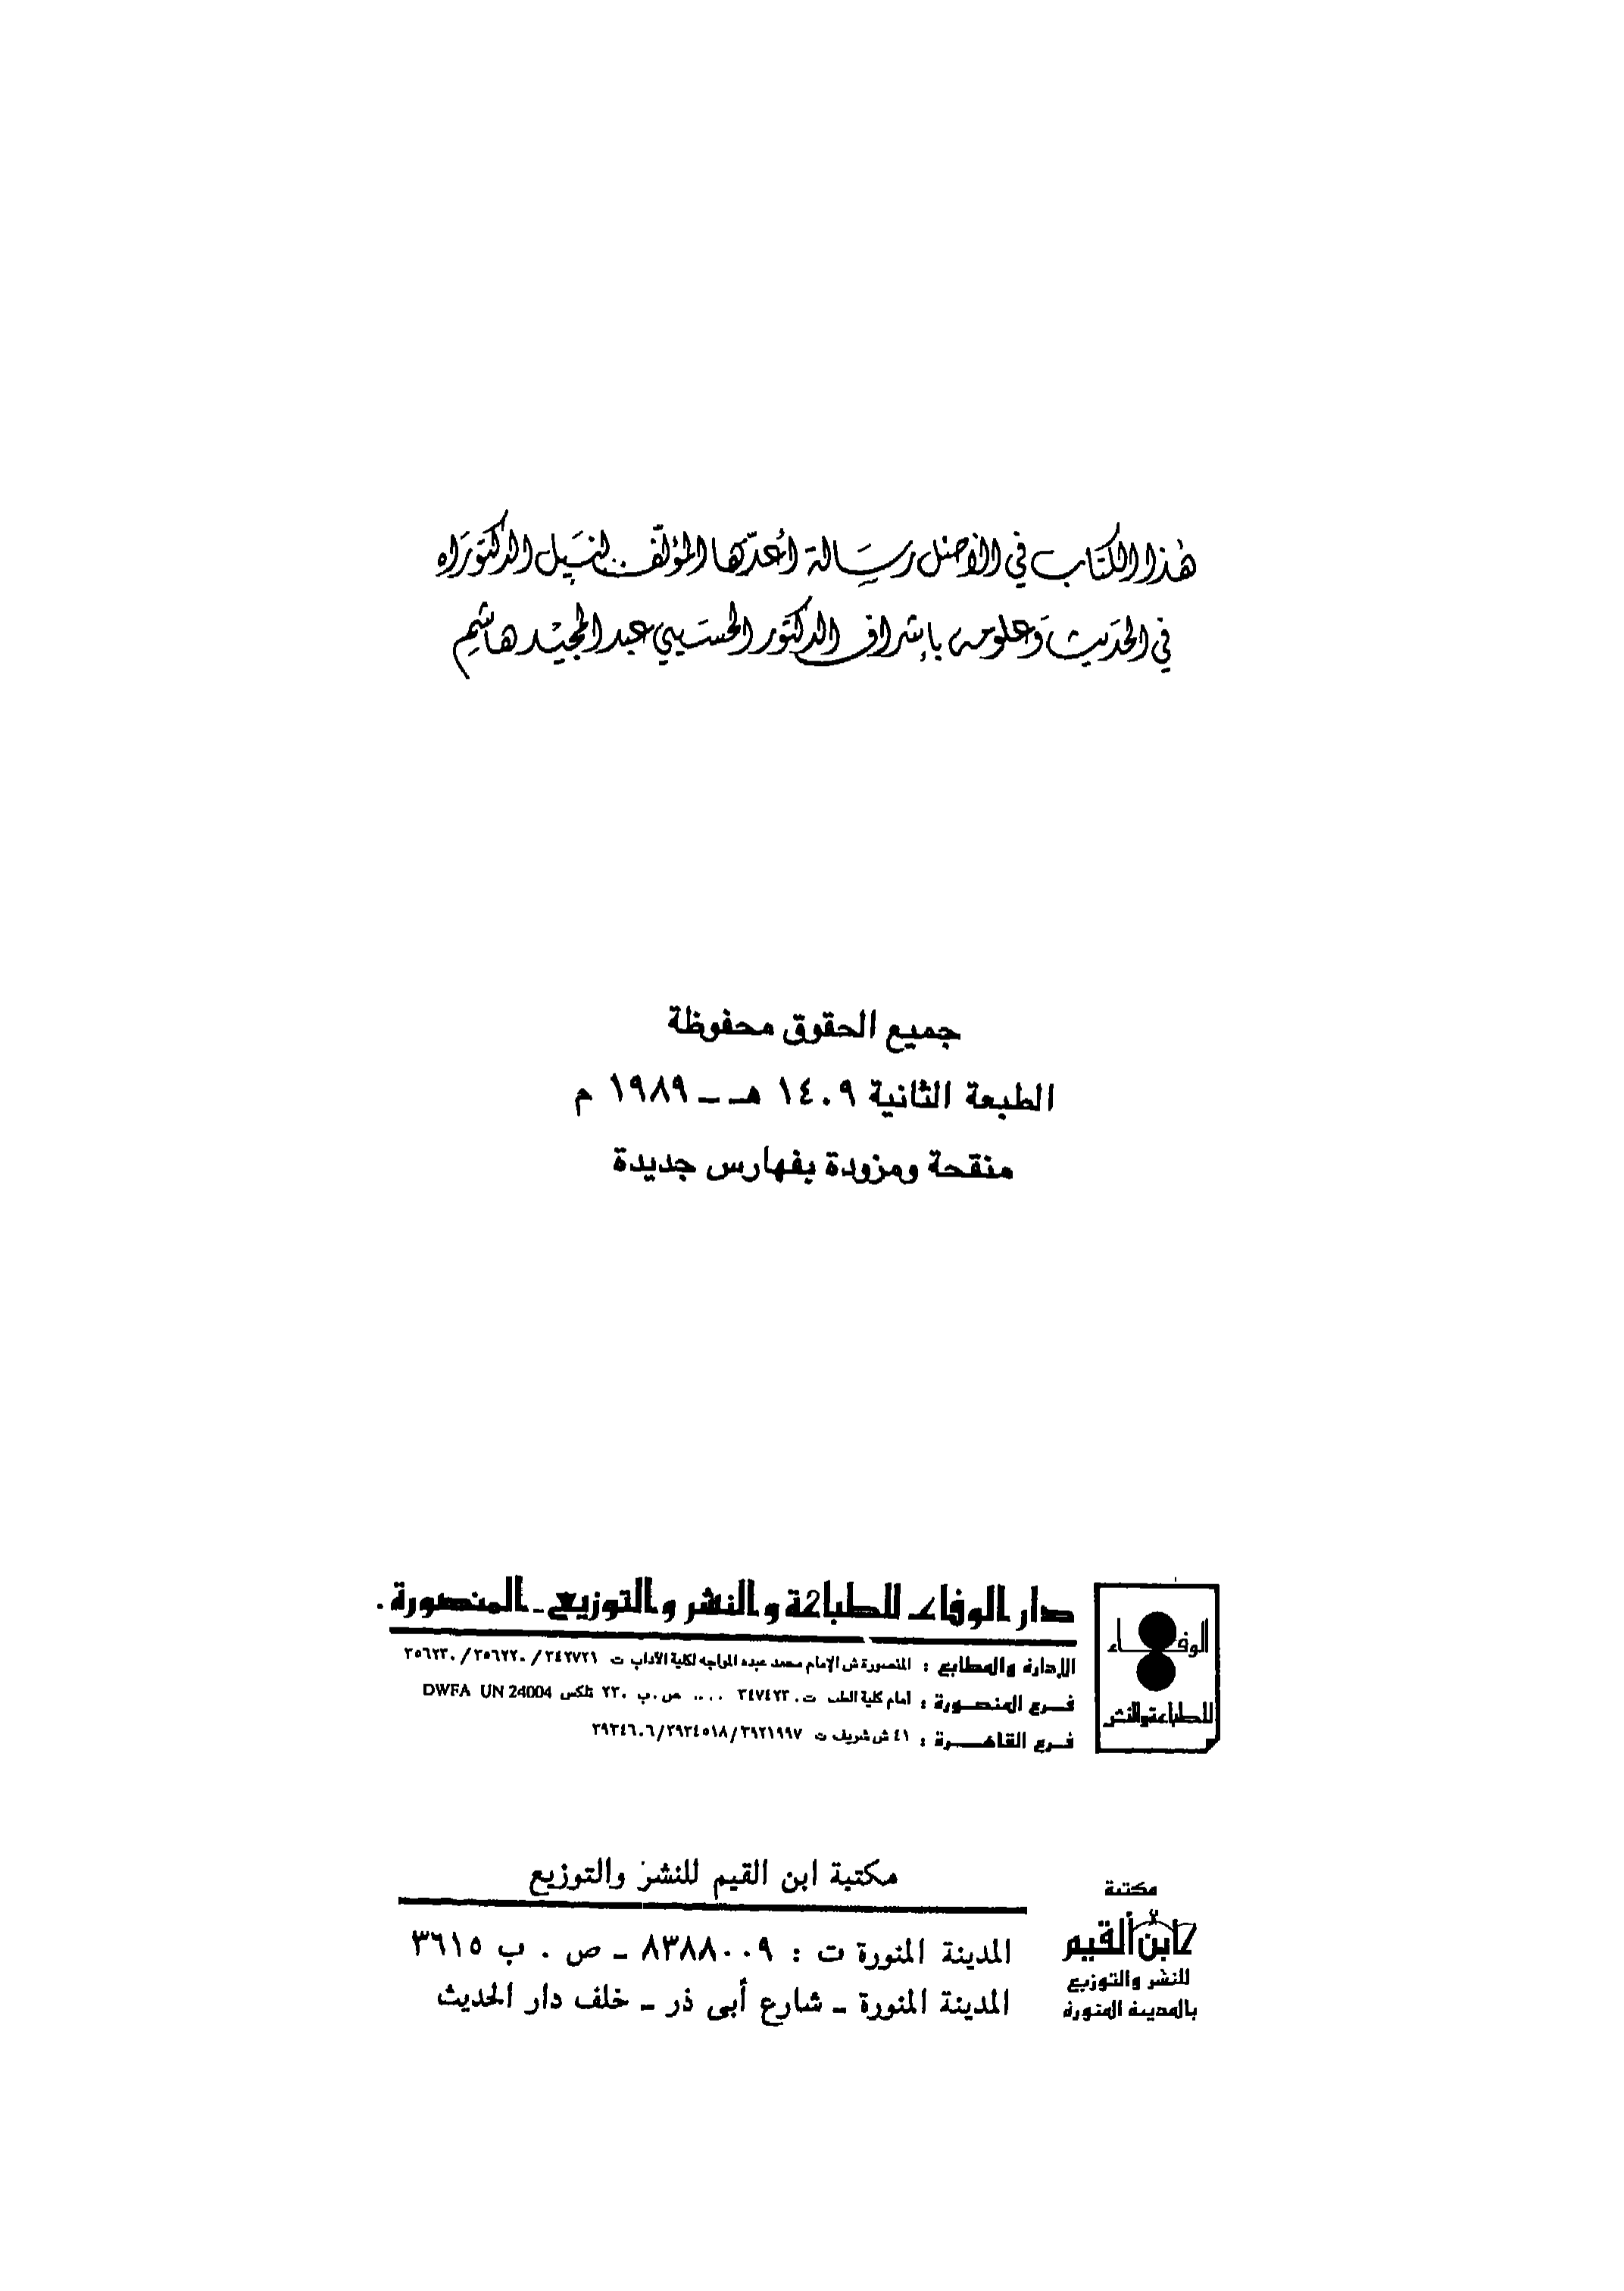 هذا الكتاب في الأصل رسالة أعدّها المؤلف لنيل الدكتوراه
في الحديث وعلومه بإشراف الدكتور الحسيني عبد المجيد هاشم
جميع الحقوق محفوظة
الطبعة الثانية ١٤٠٩ هـ ــ ١٩٨٩ م
منقحة ومزودة بفهارس جديدة
دار الوفاء للطباعة والنشر والتوزيع ـ المنصورة .
الإدارة والمطابع : المنصورة ش الإمام محمد عبده المواجه لكلية الآداب ت ٣٤٢٧٢١/ ٣٥٦٢٢٠/ ٣٥٦٢٣٠
فرع المنصورة : أمام كلية الطب ت ٣٤٧٤٢٣ .... ص.ب ٢٣٠ تلكس DWFA UN 24004
فرع القاهرة : ٤١ ش شريف ت ٣٩٢١٩٩٧/٣٩٣٤٥١٨/٣٩٣٤٦٠٦
الوفاء
للطباعة والنشر
مكتبة ابن القيم للنشر والتوزيع
المدينة المنورة ت : ٨٣٨٨٠٠٩ ـ ص . ب ٣٦١٥
المدينة المنورة ـ شارع أبى ذر ـ خلف دار الحديث
مكتبة
ابن القيم
للنشر والتوزيع
بالمدينة المنورة